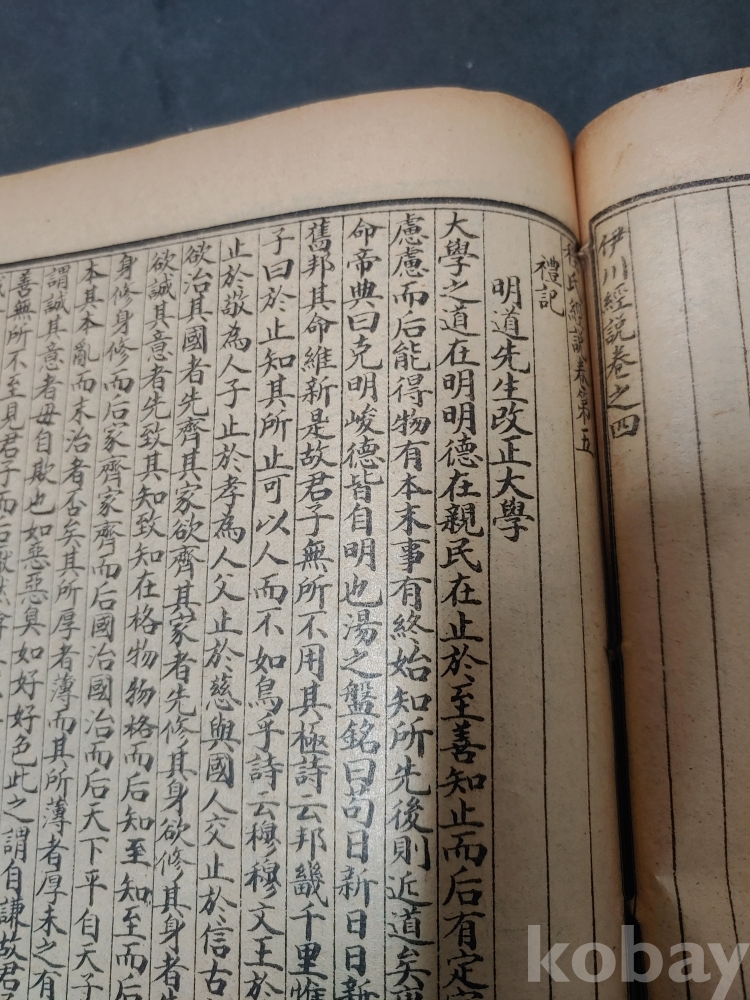 伊川經說卷之四
程氏經說卷第五
禮記
明道先生改正大學
大學之道在明明德在親民在止於至善知止而后有定
慮慮而后能得物有本末事有終始知所先後則近道矣
命帝典曰克明峻德皆自明也湯之盤銘曰苟日新日日新
舊邦其命維新是故君子無所不用其極詩云邦畿千里惟
子曰於止知其所止可以人而不如鳥乎詩云穆穆文王於
止於敬為人子止於孝為人父止於慈與國人交止於信古
欲治其國者先齊其家欲齊其家者先修其身欲修其身者
欲誠其意者先致其知致知在格物物格而后知至知至而后
身修身修而后家齊家齊而后國治國治而后天下平自天子
本其本亂而末治者否矣其所厚者薄而其所薄者厚未之有
謂誠其意者毋自欺也如惡惡臭如好好色此之謂自謙故君子
善無所不至見君子而后厭然
kobay